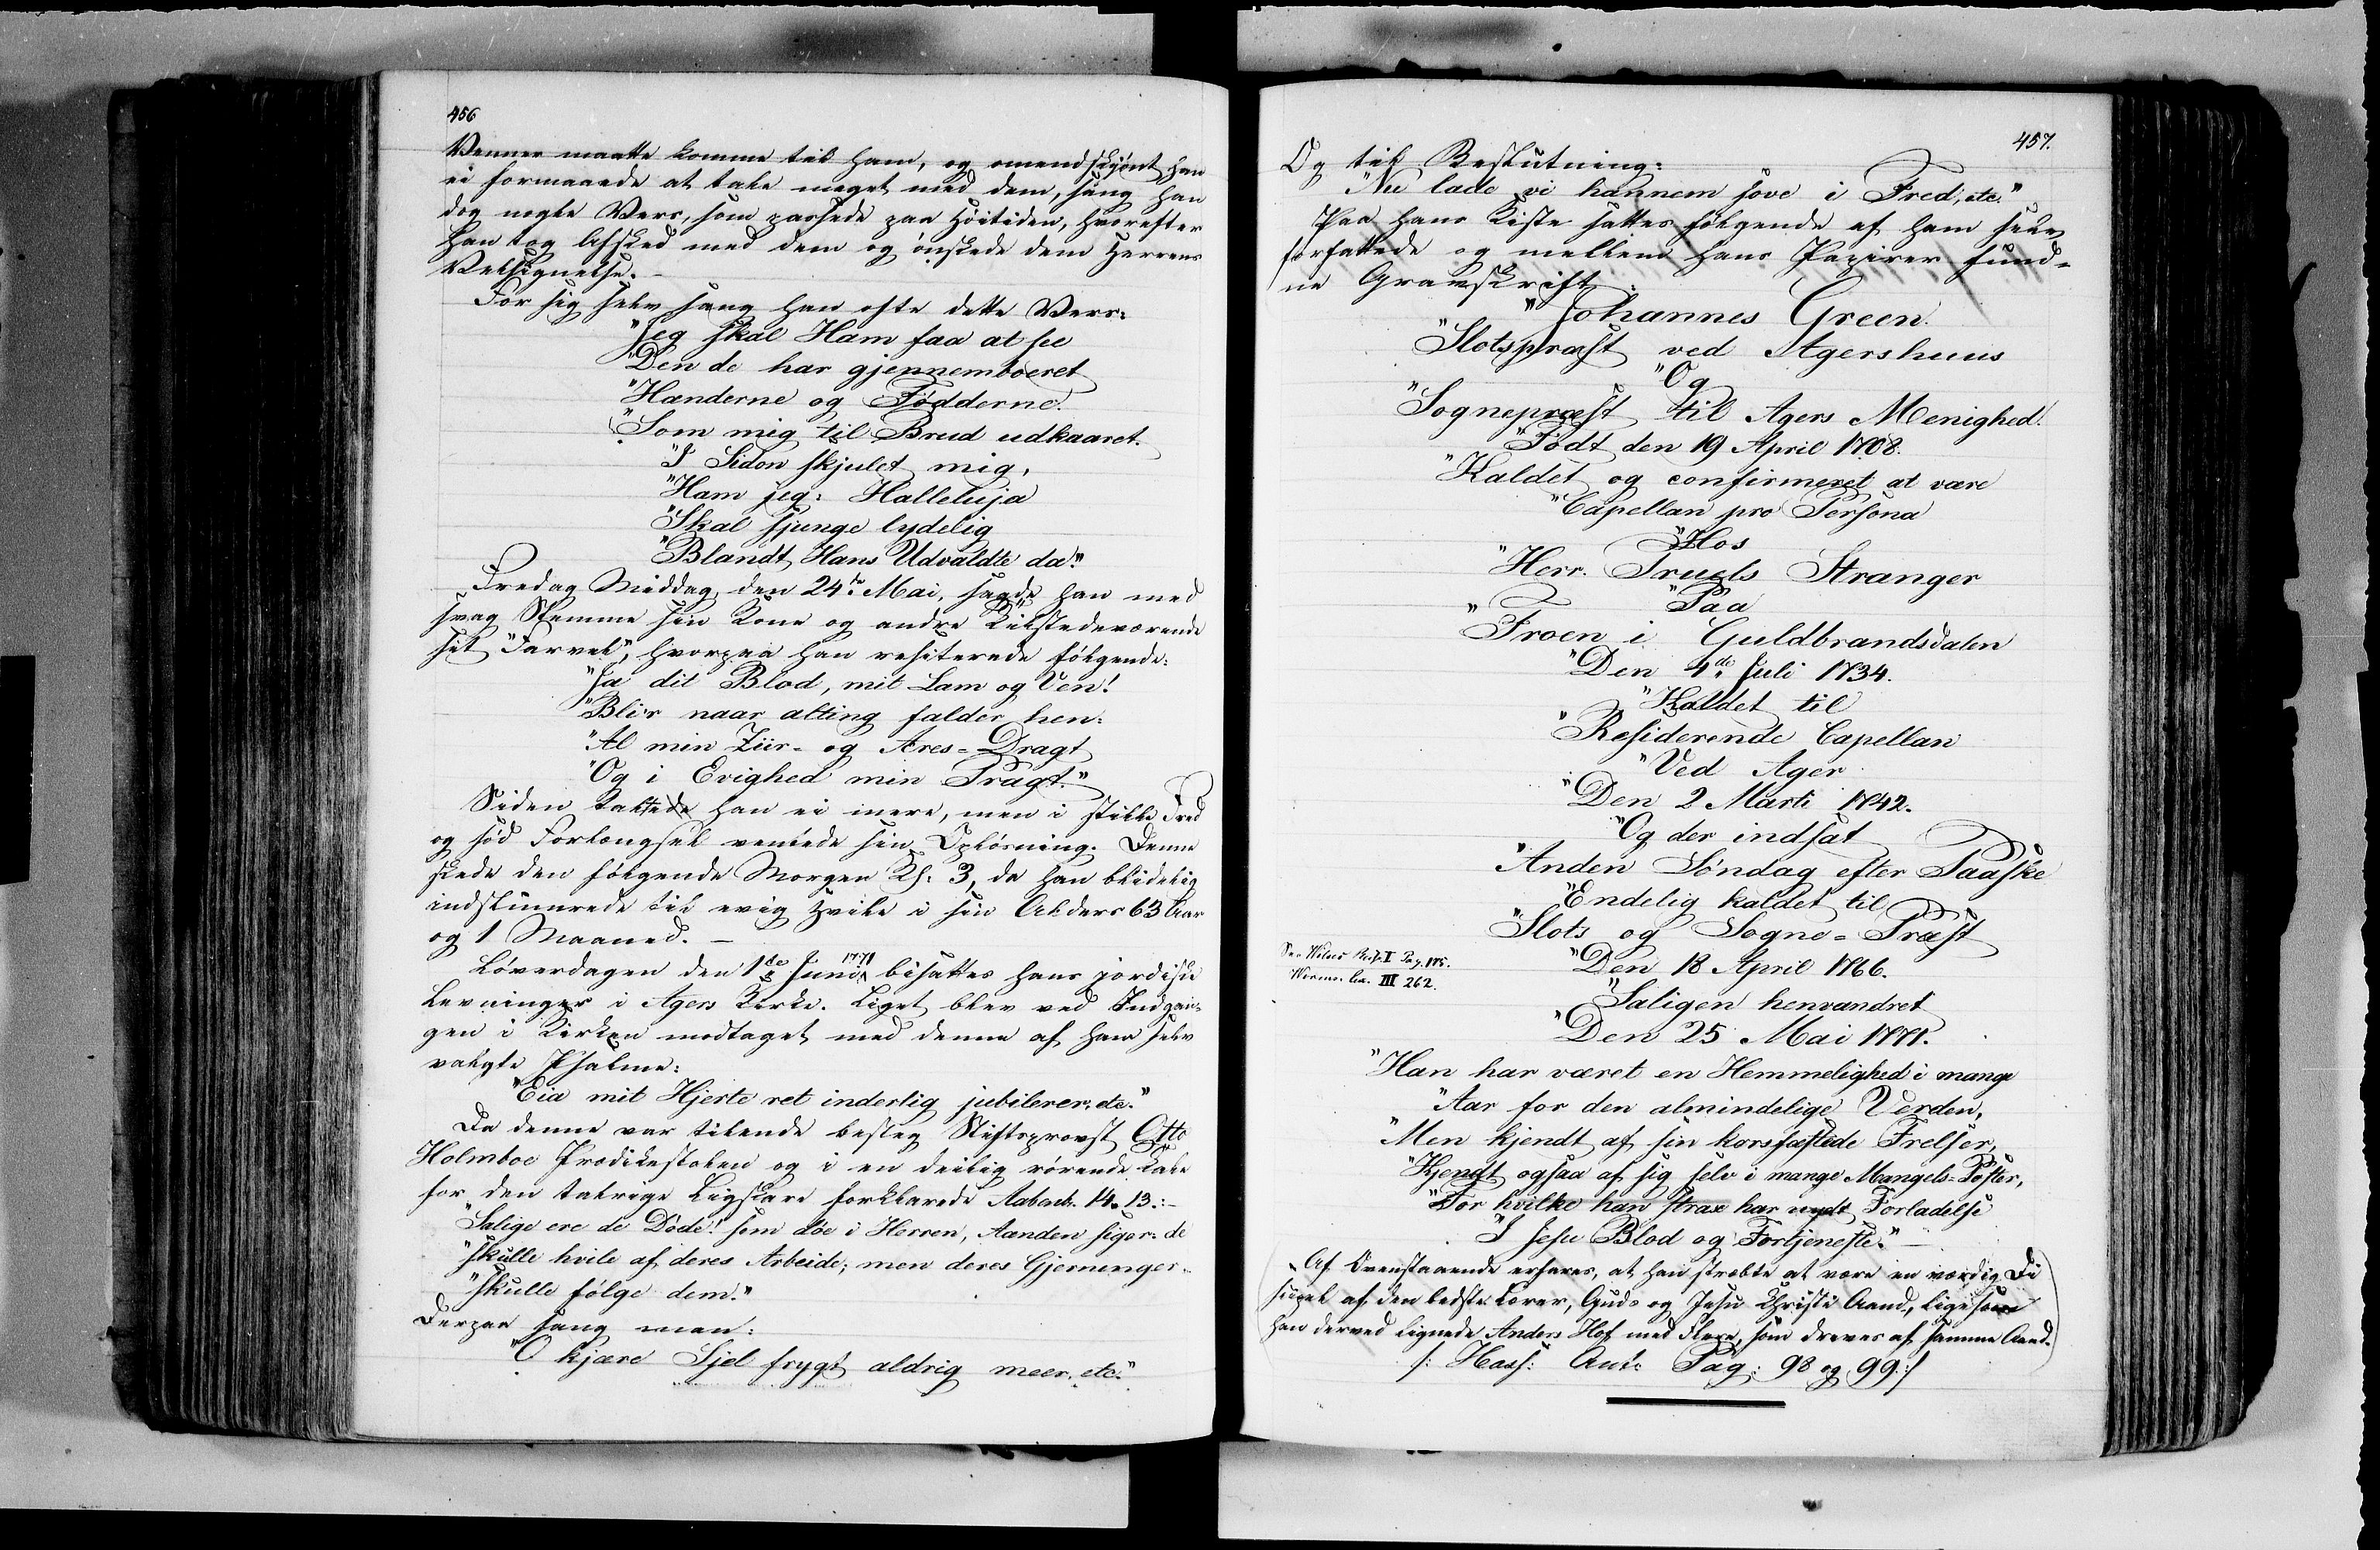 456
Venner maatte komme til ham, og omendskjønt han
ei formaaede at tale meget med dem, sang han
dog nogle Vers, som passede paa Høitiden, hvorefter
han tog Afsked med dem og ønskede dem Herrens
Velsignelse. –
For sig selv sang han ofte dette Vers:
"Jeg skal Ham faa at see
"Den de har gjennemboeret
"Hænderne og Fødderne.
"Som mig til Brud udkaaret.
"I Siden skjulet mig,
"Ham jeg: Halleluja
"Skal sjunge lydelig
"Blandt Hans Udvaldte da."
Fredag Middag, den 24de Mai, sagde han med
svag Stemme sin Kone og andre Tilstedeværende
sit "Farvel", hvorpaa han resiterede følgende:
"Ja dit Blod, mit Lam og Ven!
"Bliver naar alting falder hen:
"Al min Ziir- og Æres-Dragt
"Og i Evighed min Pragt."
Siden talte han ei mere, men i stille Fred
og sød Forlængsel ventede sin Opløsning. Denne
skede den følgende Morgen Kl. 3, da han blidelig
indslumrede til evig Hvile i sin Alders 63 Aar
og 1 Maaned. –
Løverdagen den 1de Juni 1771 bisattes hans jordiske
Levninger i Agers Kirke. Liget blev ved Indgan-
gen i Kirken modtaget med denne af ham selv
valgte Psalme:
"Eia mit Hjerte ret inderlig jubilerer, etc."
Da denne var tilende besteg Stiftsprovst Otto
Holmboe Prædikestolen og i en deilig rørende Tale
for den talrige Ligskare forklarede Aabenb. 14. 13.: –
"Salige ere de Døde! som døe i Herren, Aanden siger: de
"skulle hvile af deres Arbeide; men deres Gjerninger
"skulle følge dem."
Derpaa sang man:
"O kjære Sjel frygt aldrig meer, etc."
457.
Og til Beslutning:
"Nu lade vi hannem sove i Fred, etc."
Paa hans Kiste sattes følgende af ham selv
forfattede og mellem hans Papirer fund-
ne Gravskrift:
"Johannes Green.
"Slotspræst ved Agershuus
"Og
"Sognepræst til Agers Menighed.
"Født den 19 April 1708.
"Kaldet og confirmeret at være
"Capellan pro Persona
"Hos
"Herr. Truels Stranger
"Paa
"Froen i Guldbrandsdalen
"Den 4de Juli 1734.
"Kaldet til
"Residerende Capellan
"Ved Ager
"Den 2 Marti 1742.
"Og der indsat
"Anden Søndag efter Paaske
"Endelig kaldet til
"Slots og Sogne-Præst
"Den 18 April 1766.
Pag. 175.
III 262.
"Saligen henvandret
"Den 25 Mai 1771.
"Han har været en Hemmelighed i mange
"Aar for den almindelige Verden,
"Men kjendt af sin korsfæstede Frelser,
"Kjendt ogsaa af sig selv i mange Mangels-Poster,
"For hvilke han strax har nydt Forladelse
"I Jesu Blod og Fortjeneste." –
(Af Ovenstaaende erfares, at han stræbte at være en værdig Di
sipel af den bedste Lærer, Guds og Jesu Christi Aand, ligesom
han derved lignede Anders Hof med Flere, som dreves af samme Aand.)
/: Hass: Ant: Pag: 98 og 99:/